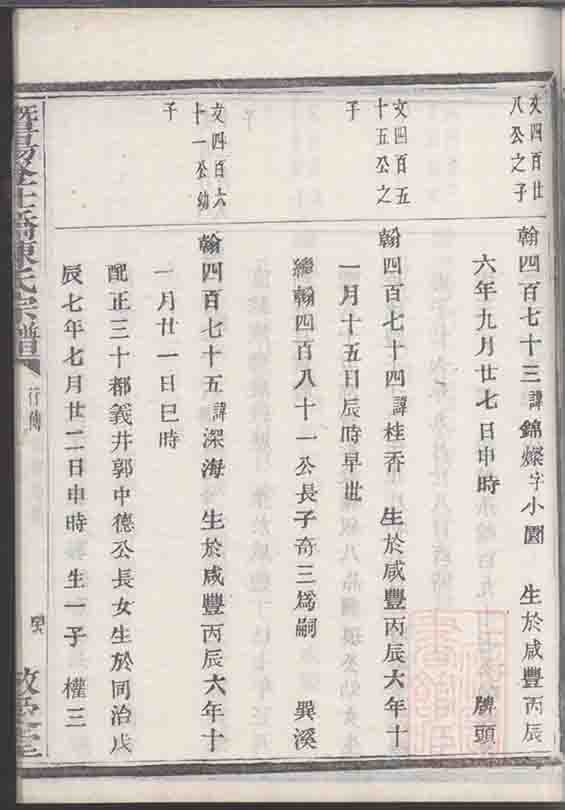 文四百廿
八公之子
翰四百七十三諱錦燦字小園 生於咸豐丙辰
六年九月廿七日申時 牌頭
文四百五
十五公之
子
翰四百七十四諱桂香 生於咸豐丙辰六年十
一月十五日辰時早世
繼翰四百八十一公長子奇三為嗣 巽溪
文四百六
十一公幼
子
翰四百七十五諱深海 生於咸豐丙辰六年十
一月廿一日巳時
配正三十都義井郭中德公長女生於同治戊
辰七年七月廿二日申時生一子 權三
陳氏宗譜
行傳